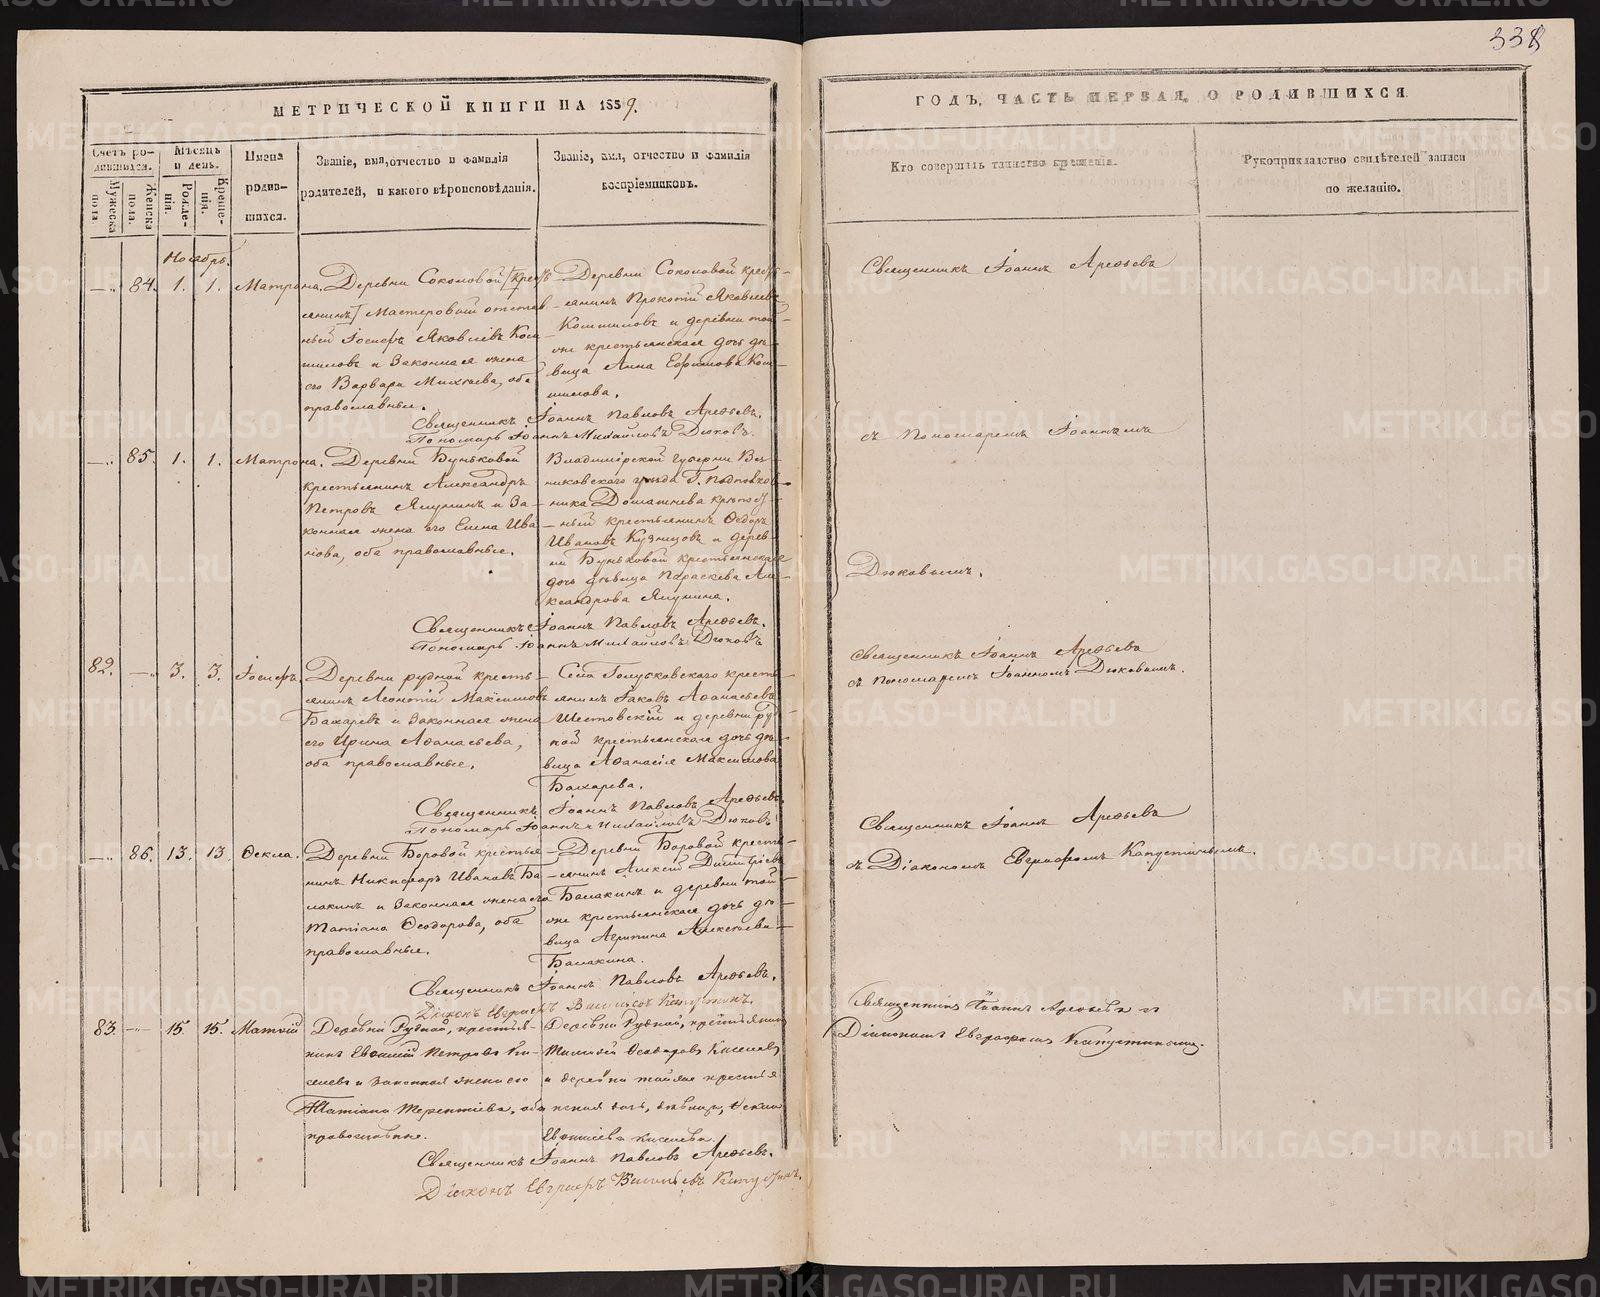 338
МЕТРИЧЕСКОЙ КНИГИ НА 1859.
ГОДЪ, ЧАСТЬ ПЕРВАЯ, О РОДИВШИХСЯ.
Счетъ родившихся.
Мужеска пола
Женска пола.
Мѣсяцъ и день.
Рожденія.
Крещенія.
Имена родившихся.
Званіе, имя, отчество и фамилія
родителей, и какого вѣроисповѣданія.
Званіе, имя, отчество и фамилія
воспріемниковъ.
Кто совершилъ таинство крещенія.
Рукоприкладство свидѣтелей записи
по желанію.
Ноябрь.
84. 1. 1. Матрона.
Деревни Соколовой [крестьянинъ] Мастеровый отставный Іосифъ Яковлевъ
и Законная жена
его Варвара
оба
православные.
Деревни Соколовой крестьянинъ Прокопій Яковлевъ
и деревни той
же крестьянская дочь дѣвица Анна Ефимова
Священникъ Іоаннъ Павловъ Арефьевъ.
Пономарь Іоаннъ Михайловъ Дюковъ.
Священникъ Іоаннъ Арефьевъ
съ Пономаремъ Іоанномъ
Дюковымъ.
85. 1. 1. Матрона.
Деревни Буньковой
крестьянинъ Александръ
Петровъ Ялунинъ и Законная жена его Елена Иванова, оба православные.
Владимірской губерни
уѣзда Г.
крѣпостный крестьянинъ Ѳедоръ
Ивановъ Кузнецовъ и деревни Буньковой крестьянская
дочь дѣвица Параскева Александрова Ялунина.
Священникъ Іоаннъ Павловъ Арефьевъ.
Пономарь Іоаннъ Михайловъ Дюковъ
82. 3. 3. Іосифъ.
Деревни рудной крестьянинъ Леонтій Максимовъ
Бахаревъ и Законная жена
его Ирина Аѳанасьева,
оба православные.
Села Голубковскаго крестьянинъ Іаковъ Аѳанасьевъ
Шестовскій и деревни Рудной крестьянская дочь дѣвица Аѳанасія Максимова
Бахарева.
Священникъ Іоаннъ Павловъ Арефьевъ.
Пономарь Іоаннъ Михайловъ Дюковъ
Священникъ Іоаннъ Арефьевъ
съ Пономаремъ Іоанномъ Дюковымъ.
86. 13. 13. Ѳекла.
Деревни Боровой крестьянинъ Никифоръ Ивановъ Балакинъ и Законная жена его
Татіана Ѳеодорова, оба
православные.
Деревни Боровой крестьянинъ Алексій Димитріевъ
Балакинъ и деревни той
же крестьянская дочь дѣвица Агрипина Алексіева
Балакина.
Священникъ Іоаннъ Павловъ Арефьевъ.
Діаконъ Евграфъ Васильевъ Капустинъ.
Священникъ Іоаннъ Арефьевъ
съ Діакономъ Евграфомъ Капустинымъ.
83. 15. 15. Матѳій
Деревни Рудной, крестьянинъ Евѳимій Петровъ Киселевъ и законная жена его
Татіана Терентіева, оба
православные.
Деревни Рудной, крестьянинъ
Ѳеодоровъ Киселевъ
и деревни тойже крестьянская дочь, дѣвица, Ѳекла
Евѳиміева Киселева.
Священникъ Іоаннъ Павловъ Арефьевъ.
Діаконъ Евграфъ Васильевъ Капустинъ.
Священникъ Іоаннъ Арефьевъ съ
Діакономъ Евграфомъ Капустинымъ.
METRIKI.GASO-URAL.RU